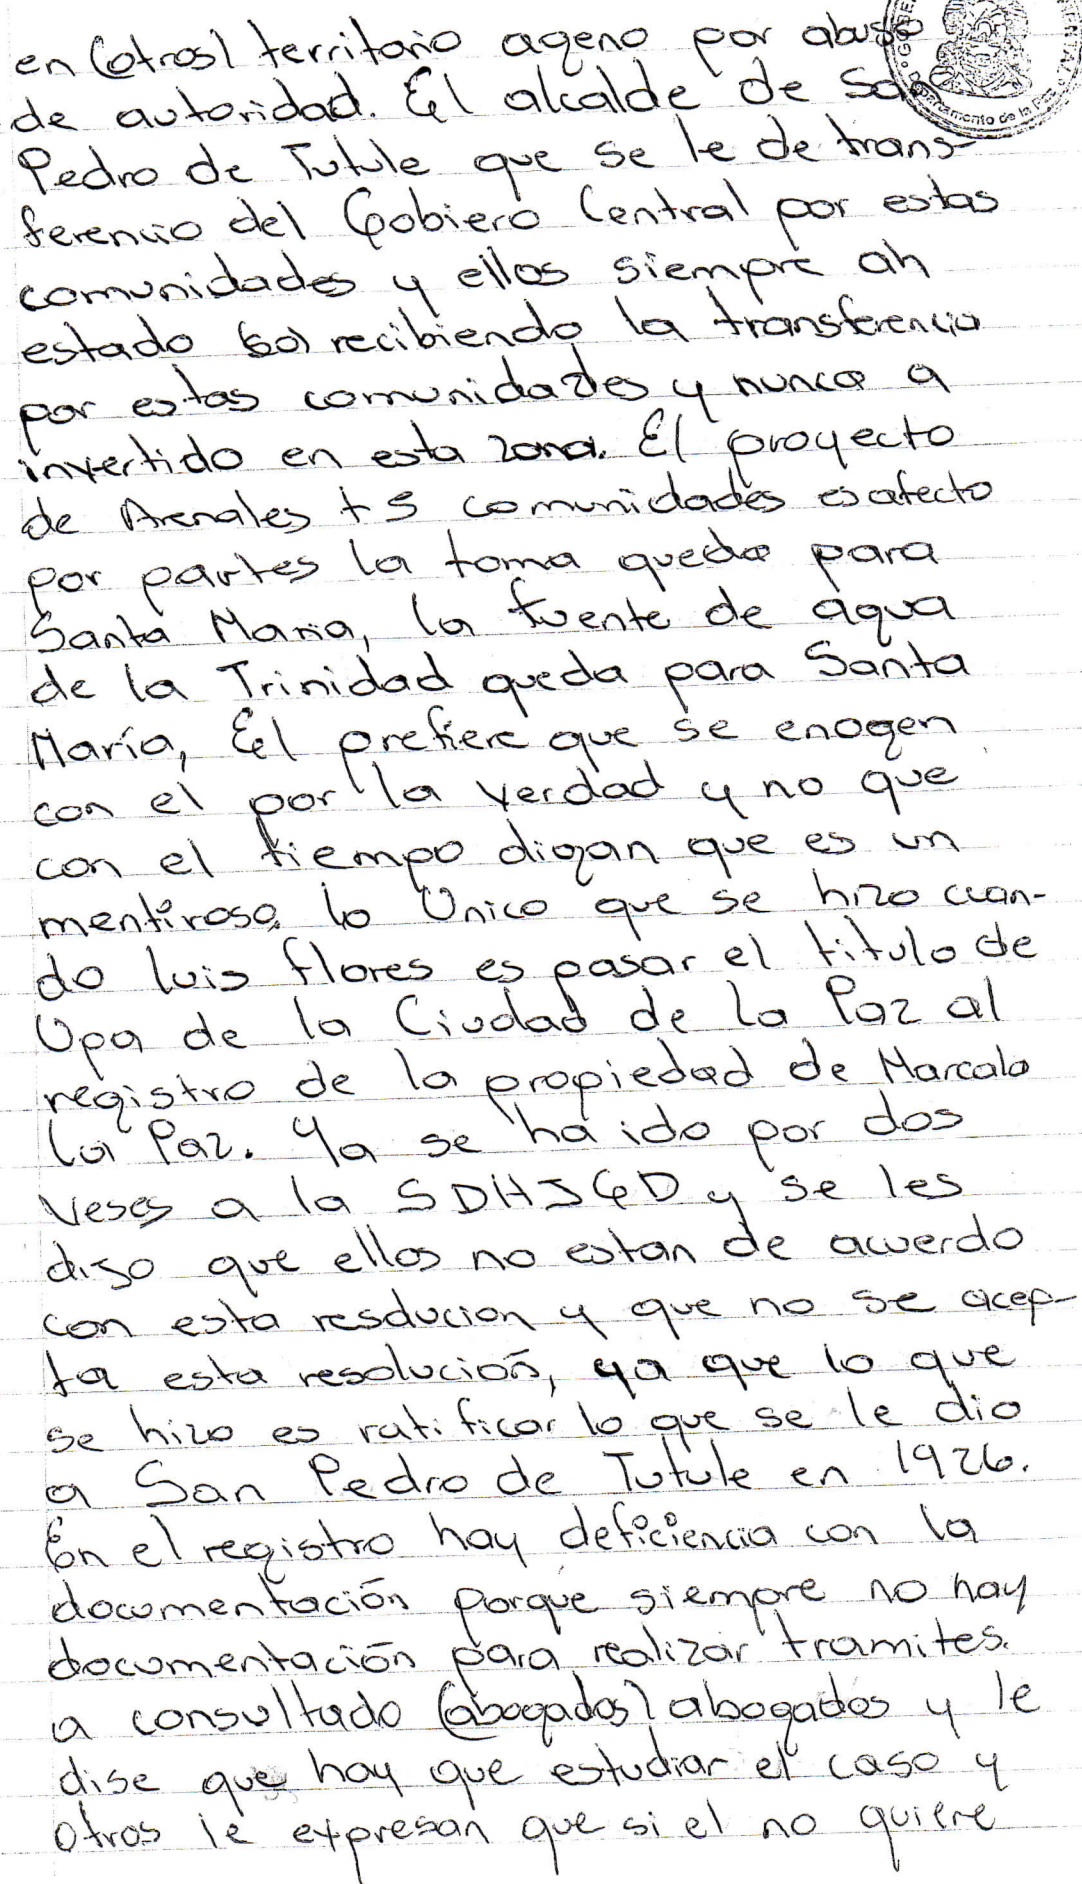 en (otros) territorio ageno por abuso
de autoridad. El alcalde de San
Pedro de Tutule que se le de trans-
ferencia del Gobiero Central por estas
comunidades y ellos siempre ah
estado (so) recibiendo la transferencia
por estas comunidades y nunca a
invertido en esta zona. El proyecto
de Arenales + 5 comunidades es afecto
por partes la toma queda para
Santa Maria, la fuente de agua
de la Trinidad queda para Santa
María, El prefiere que se enogen
con el por la verdad y no que
con el tiempo digan que es un
mentiroso. lo Unico que se hizo cuan-
do luis flores es pasar el titulo de
Upa de la Ciudad de La Paz al
registro de la propiedad de Marcala
La Paz. Ya se ha ido por dos
veses a la SDHJGD y se les
dijo que ellos no estan de acuerdo
con esta resolucion y que no se acep-
ta esta resolución, ya que lo que
se hizo es ratificar lo que se le dio
a San Pedro de Tutule en 1926.
En el registro hay deficiencia con la
documentación porque siempre no hay
documentación para realizar tramites.
a consultado (abogados) abogados y le
dise que hay que estudiar el caso y
otros le expresan que si el no quiere